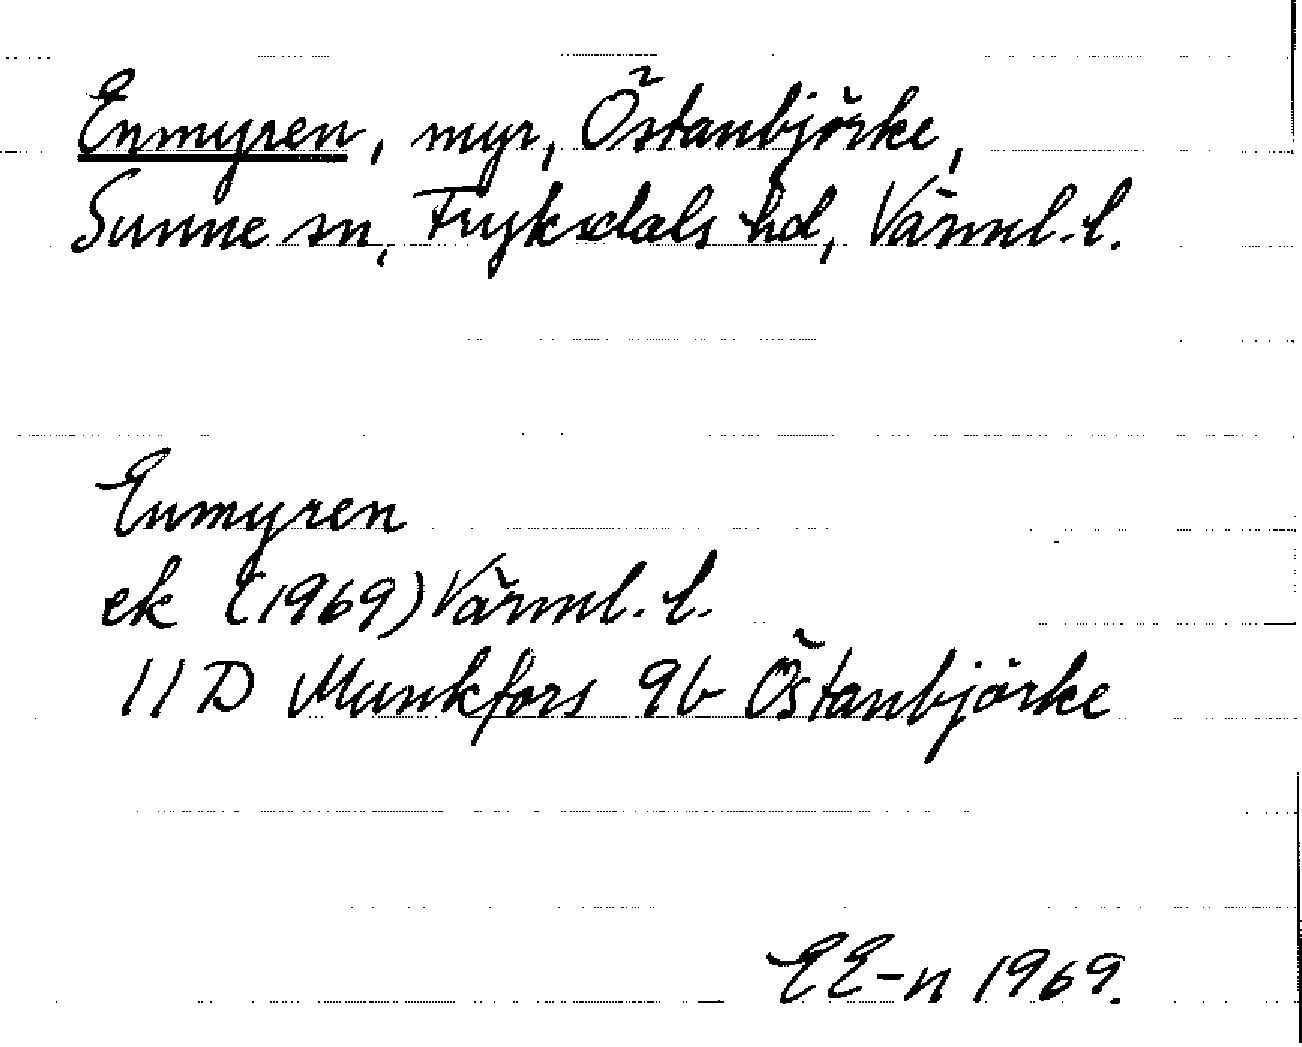 Enmyren, myr, Östanbjörke,
Sunne sn, Fryksdals hd, Värml. l.
Enmyren
ek (1969) Värml. l.
11 D Munkfors 9b Östanbjörke
EE-n 1969.